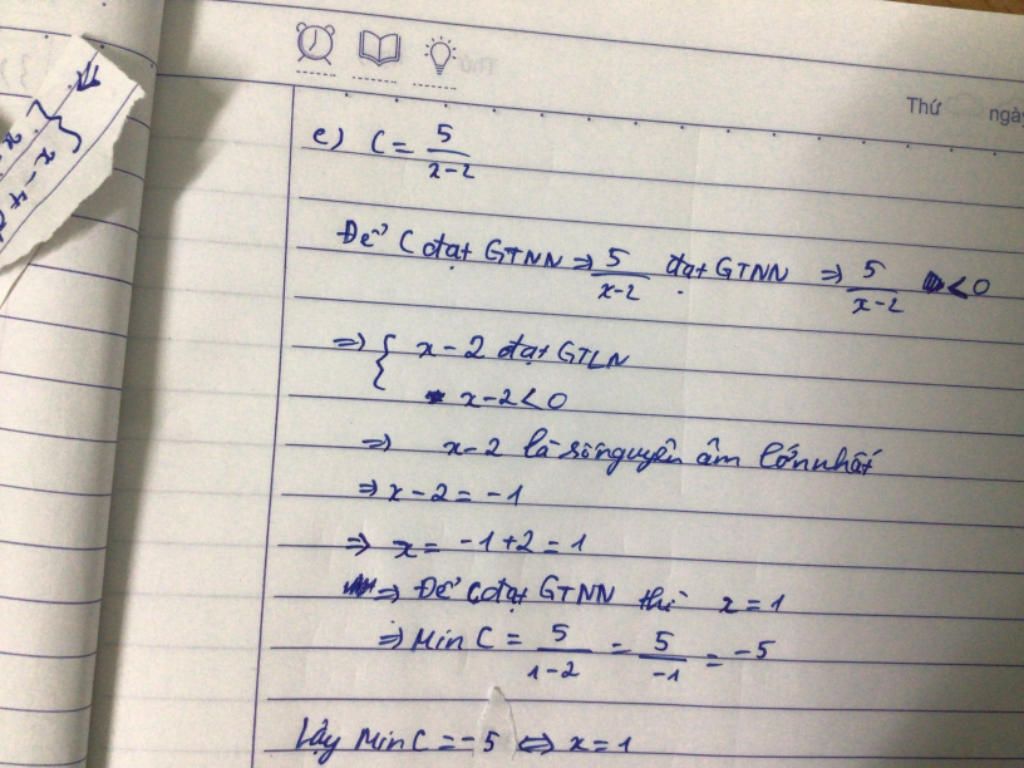 Thứ ngày
c) C = 5/(x-2)
Để C đạt GTNN ⇒ 5/(x-2) đạt GTNN ⇒ 5/(x-2) < 0
⇒ { x - 2 đạt GTLN
x - 2 < 0
⇒ x - 2 là số nguyên âm lớn nhất
⇒ x - 2 = -1
⇒ x = -1 + 2 = 1
⇒ Để C đạt GTNN thì x = 1
⇒ Min C = 5/(1-2) = 5/-1 = -5
Vậy Min C = -5 ⇔ x = 1